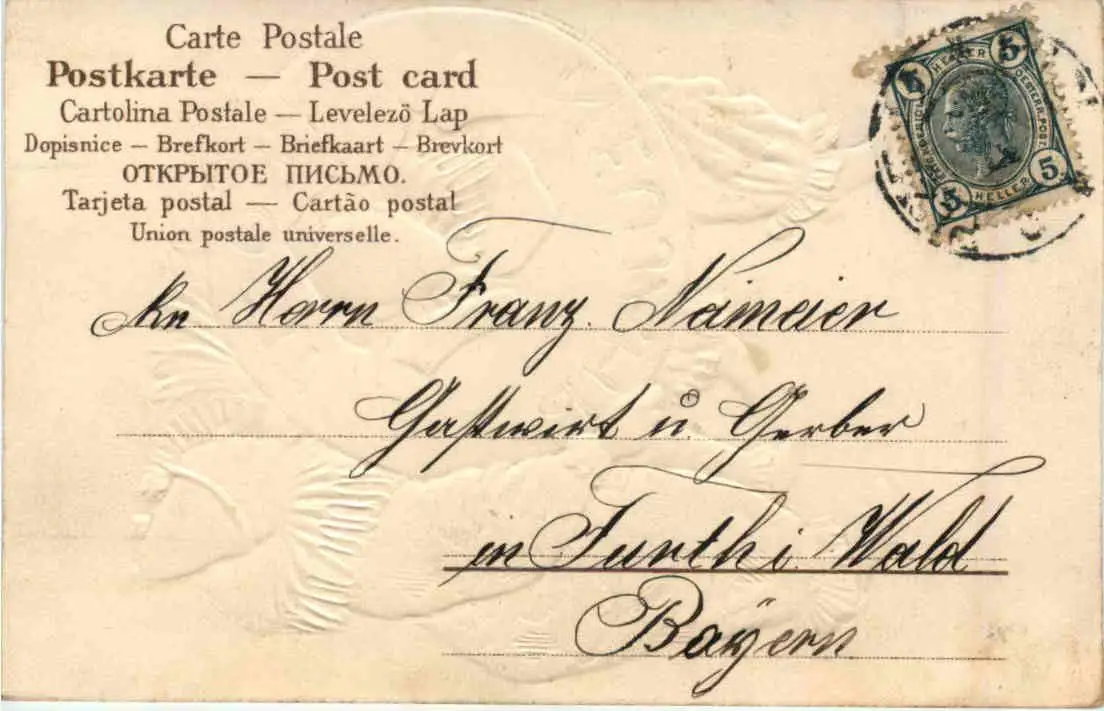 Carte Postale
Postkarte — Post card
Cartolina Postale — Levelezö Lap
Dopisnice — Brefkort — Briefkaart — Brevkort
ОТКРЫТОЕ ПИСЬМО.
Tarjeta postal — Cartão postal
Union postale universelle.
5 HELLER 5
OESTERR. POST
5 HELLER 5
An Herrn Franz. Naimaier
Gastwirt u. Gerber
in Furth i. Wald
Bayern